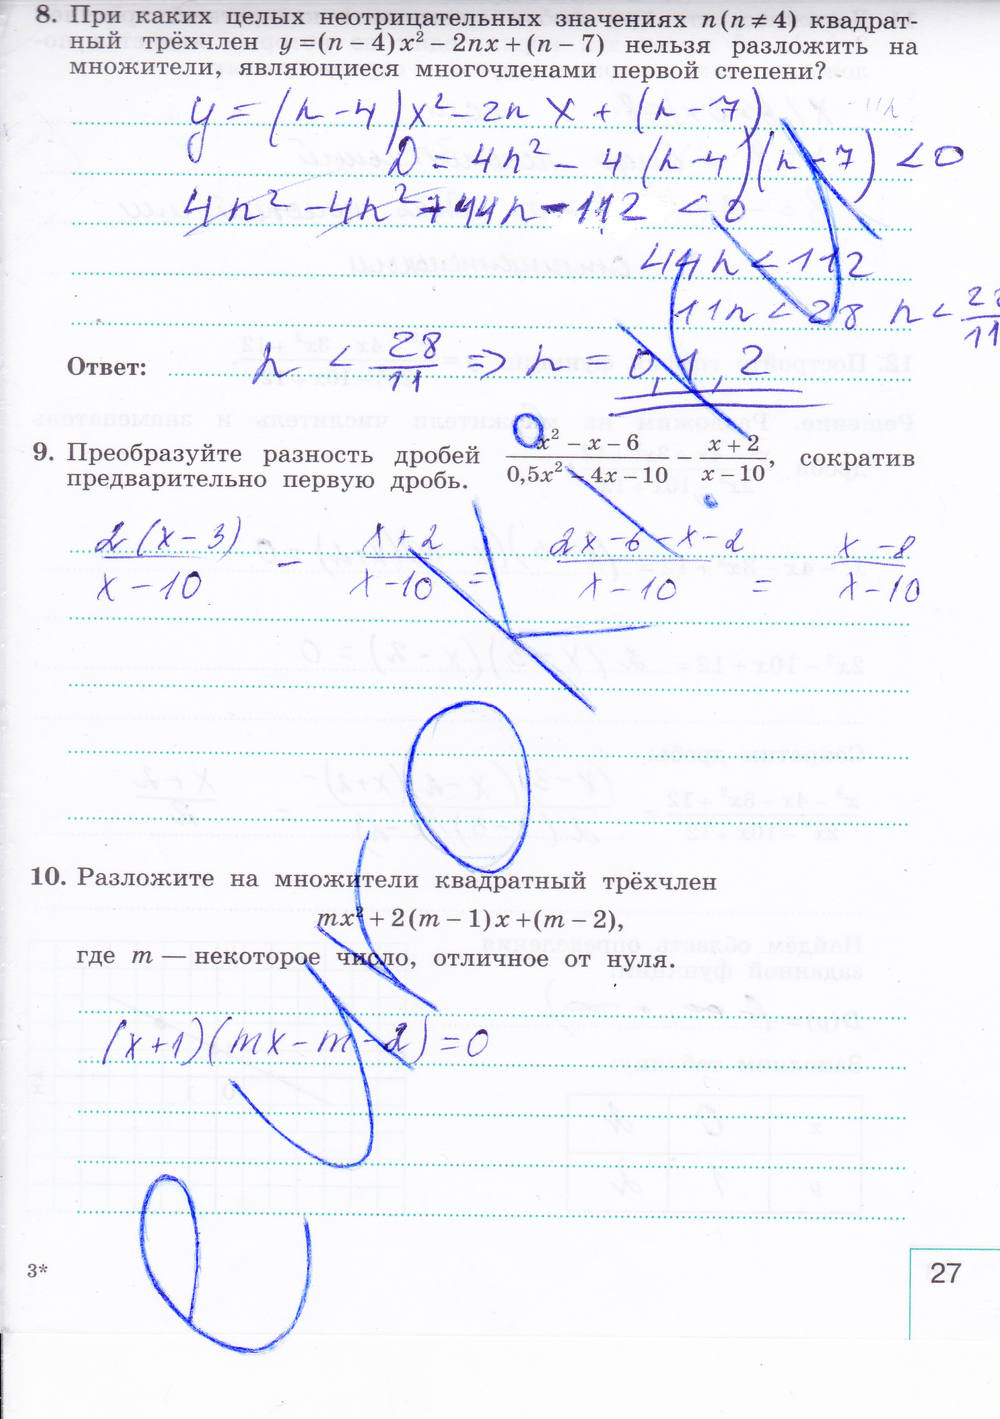 8. При каких целых неотрицательных значениях n (n ≠ 4) квадрат-
ный трёхчлен y = (n − 4) x² − 2nx + (n − 7) нельзя разложить на
множители, являющиеся многочленами первой степени?
y = (n − 4)x² − 2n x + (n − 7)
D = 4n² − 4(n − 4)(n − 7) < 0
4n² − 4n² + 44n − 112 < 0
44n < 112
11n < 28 n < 28/11
Ответ: n < 28/11 => n = 0, 1, 2
9. Преобразуйте разность дробей (x² − x − 6)/(0,5x² − 4x − 10) − (x + 2)/(x − 10), сократив
предварительно первую дробь.
2(x − 3)/(x − 10) − (x + 2)/(x − 10) = (2x − 6 − x − 2)/(x − 10) = (x − 8)/(x − 10)
10. Разложите на множители квадратный трёхчлен
mx² + 2(m − 1)x + (m − 2),
где m — некоторое число, отличное от нуля.
(x + 1)(mx − m − 2) = 0
3*
27